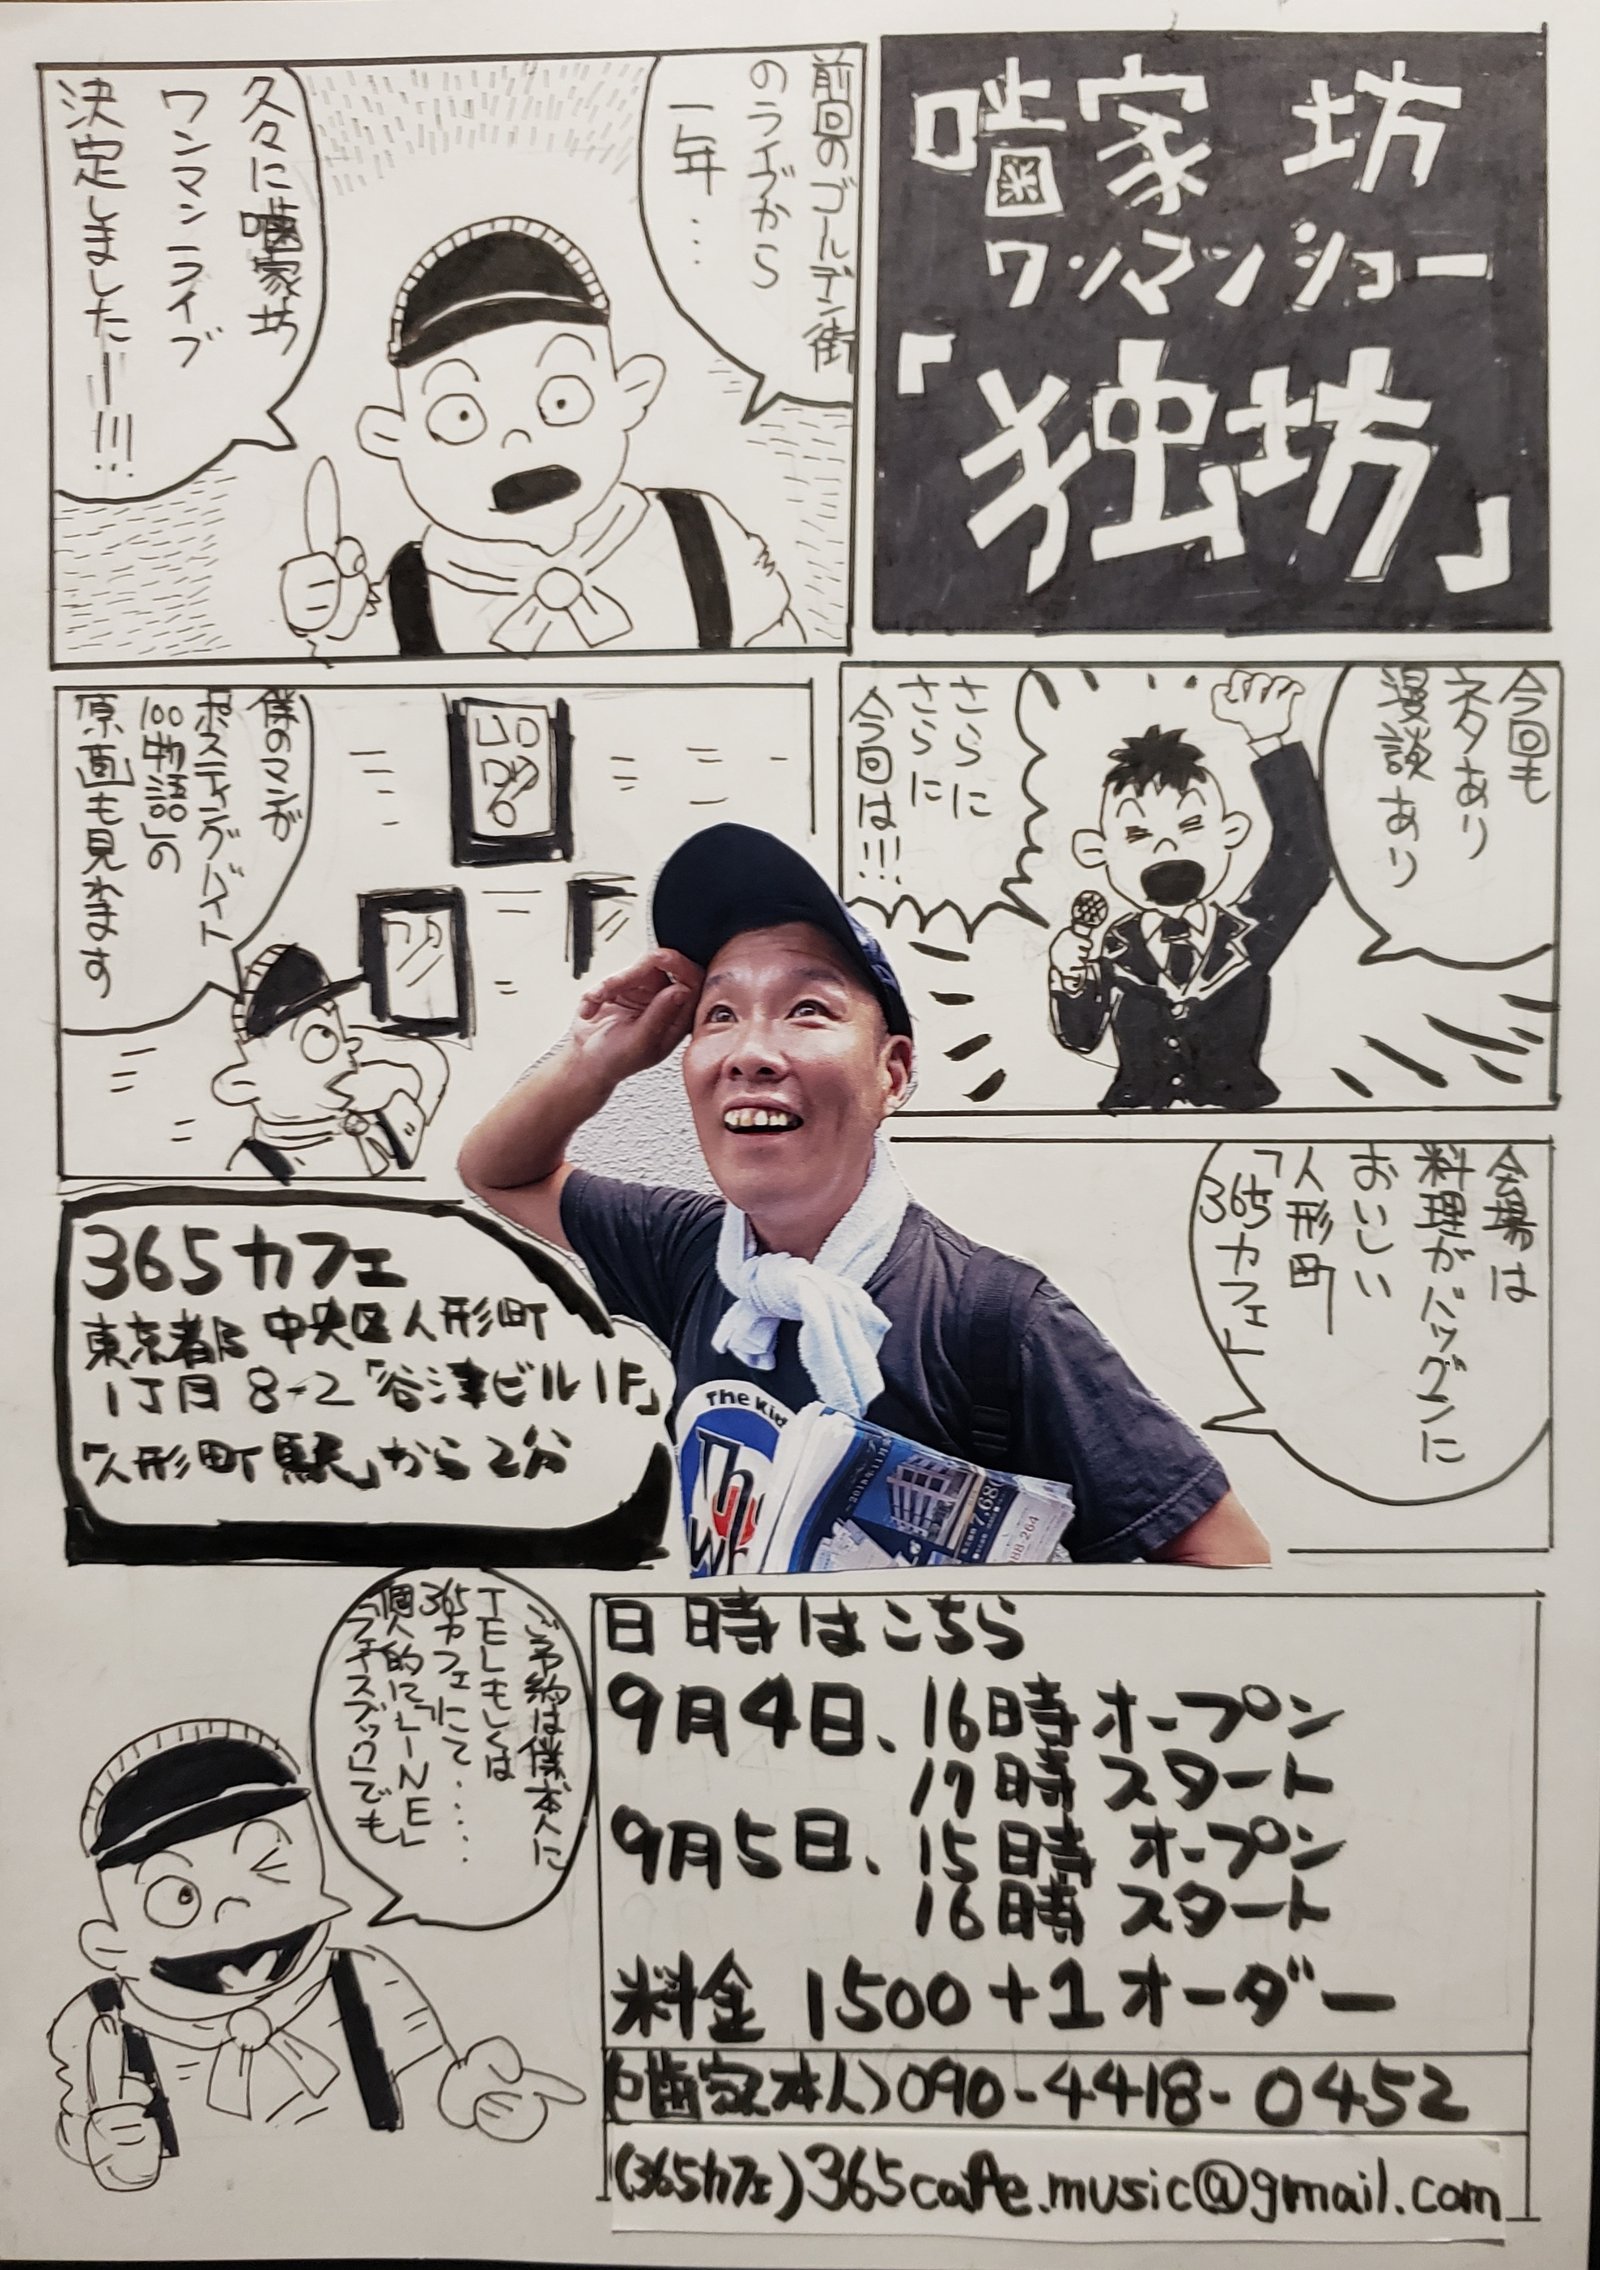 噛家坊
ワンマンショー
「独坊」
前回のゴールデン街
のライヴから
一年…
久々に噛家坊
ワンマンライブ
決定しましたー!!!
今回も
ネタあり
漫談あり
さらに
さらに
今回は!!!
僕のマンガ
「ポスティングバイト
100物語」の
原画も見れます
会場は
料理がバツグンに
おいしい
人形町
「365カフェ」
365カフェ
東京都 中央区人形町
1丁目 8-2「谷津ビル1F」
「人形町駅」から2分
The Kids
Wh
2018年11月
7,680
88-264
ご予約は僕本人に
TELもしくは
365カフェにて……
個人的に「LINE」
「フェイスブック」でも
日時はこちら
9月4日、16時オープン
17時スタート
9月5日、15時オープン
16時スタート
料金 1500+1オーダー
(噛家本人)090-4418-0452
(365カフェ)365cafe.music@gmail.com